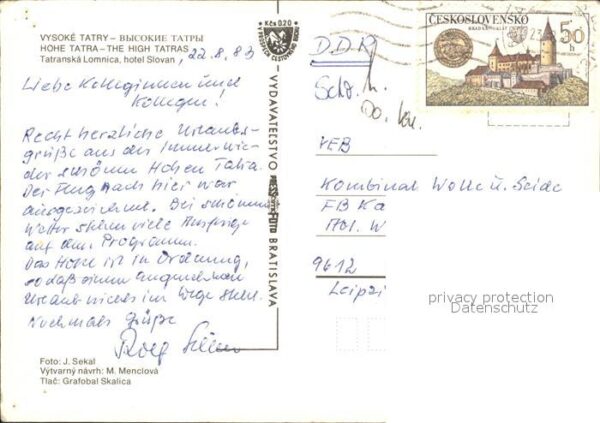 VYSOKÉ TATRY – ВЫСОКИЕ ТАТРЫ
HOHE TATRA – THE HIGH TATRAS
Tatranská Lomnica, hotel Slovan
22.8.83
Liebe Kolleginnen und
Kollegen!
Recht herzliche Urlaubs-
grüße aus der immer wie-
der schönen Hohen Tatra.
Der Flug nach hier war
ausgezeichnet. Bei schönem
Wetter stehen viele Ausflüge
auf dem Programm.
Das Hotel ist in Ordnung,
so daß einem angenehmen
Urlaub nichts im Wege steht.
Nochmals Grüße
Rolf
Foto: J. Sekal
Výtvarný návrh: M. Menclová
Tlač: Grafobal Skalica
Kčs 0,20
VYDAVATEĽSTVO
PRESSFOTO
BRATISLAVA
ČESKOSLOVENSKO
50 h
DDR
VEB
Kombinat Wolle u. Seide
FB Ka
Abt. W
9612
Leipzi
privacy protection
Datenschutz